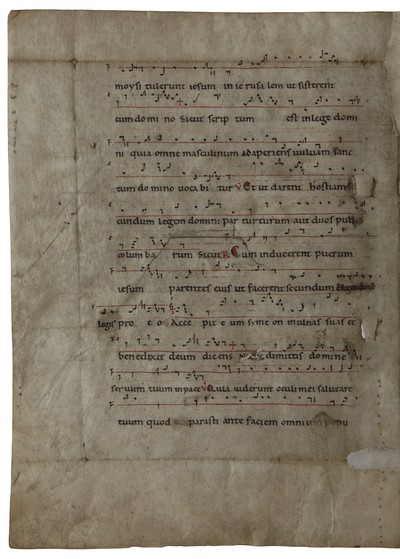 moysi tulerunt iesum in ie rusa lem ut sisterent
eum do mi no Sicut scrip tum est in lege domi
ni quia omne masculinum adaperiens vulvam sanc
tum do mino voca bi tur V Et ut darent hostiam
cundum legem domini par turturum aut duos pull
columba rum Sicut R Cum inducerent puerum
iesum parentes eius ut facerent secundum
legis pro e o Acce pit e um symeon in ulnas suas et
benedixit deum dicens dimittis domine
servum tuum in pace V Quia viderunt oculi mei salutare
tuum quod parasti ante faciem omnium popu